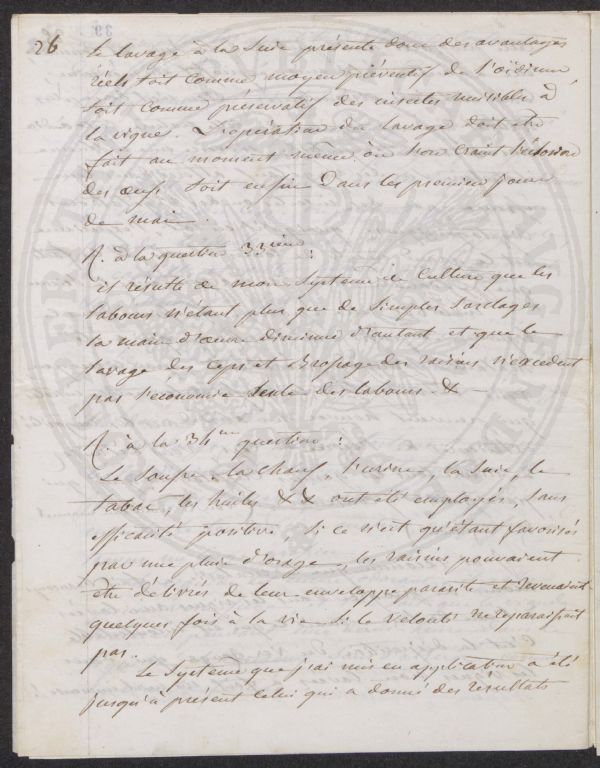 26
Le lavage à la Suie présente donc des avantages
réels soit comme moyen préventif de l'oïdium,
soit comme préservatif des insectes nuisibles à
la vigne. L'opération du lavage doit être
fait au moment même où l'on craint l'éclosion
des œufs soit enfin dans les premiers jours
de mai.
R. à la question 33ième :
il résulte de mon système de Culture que les
labours n'étant plus que de simples sarclages
la main d'œuvre diminue d'autant et que le
lavage des ceps et des raisins n'excedent
pas l'économie seule des labours. &
R. à la 34ème question :
Le soufre, la chaux, l'urine, la Suie, le
tabac, les huiles && ont été employés, sans
efficacité positive, si ce n'est qu'étant favorisés
par une pluie d'orage, les raisins pouvaient
être délivrés de leur enveloppe parasite et revenaient
quelques fois à la vie si le velouté ne reparaissait
pas.
Le Système que j'ai mis en application a été
jusqu'à présent celui qui a donné des résultats